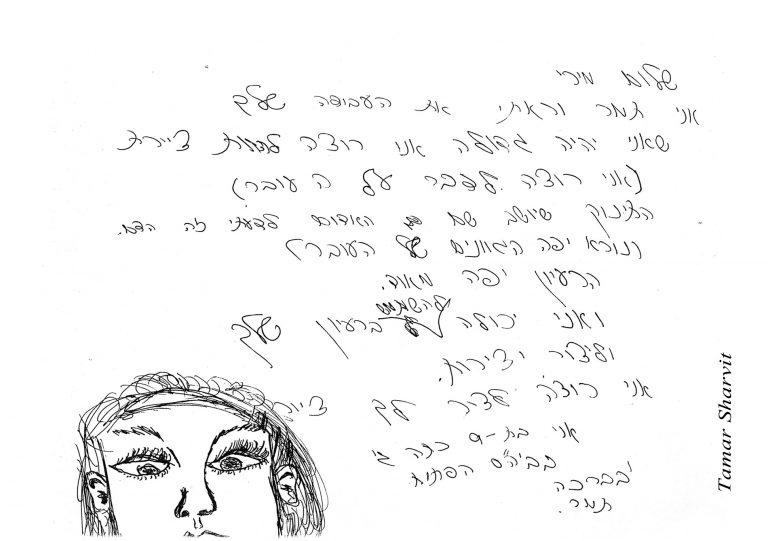 שלום מירי
אני תמר וראתי את העבודה שלך
שאני יהיה גדולה אני רוצה להיות ציירת
(אני רוצה לדבר על ה עובר)
התינוק שיושב שם האדום לדעתי זה הדם.
נורא יפה הגוונים של העובר?
הרעיון יפה מאוד.
ואני יכולה להשתמש ברעיון שלך
וליצור יצירות.
אני רוצה לצייר לך ציור
אני בת-9 כתה ג'
בביה"ס הפתוח
בברכה
תמר.
Tamar Sharvit